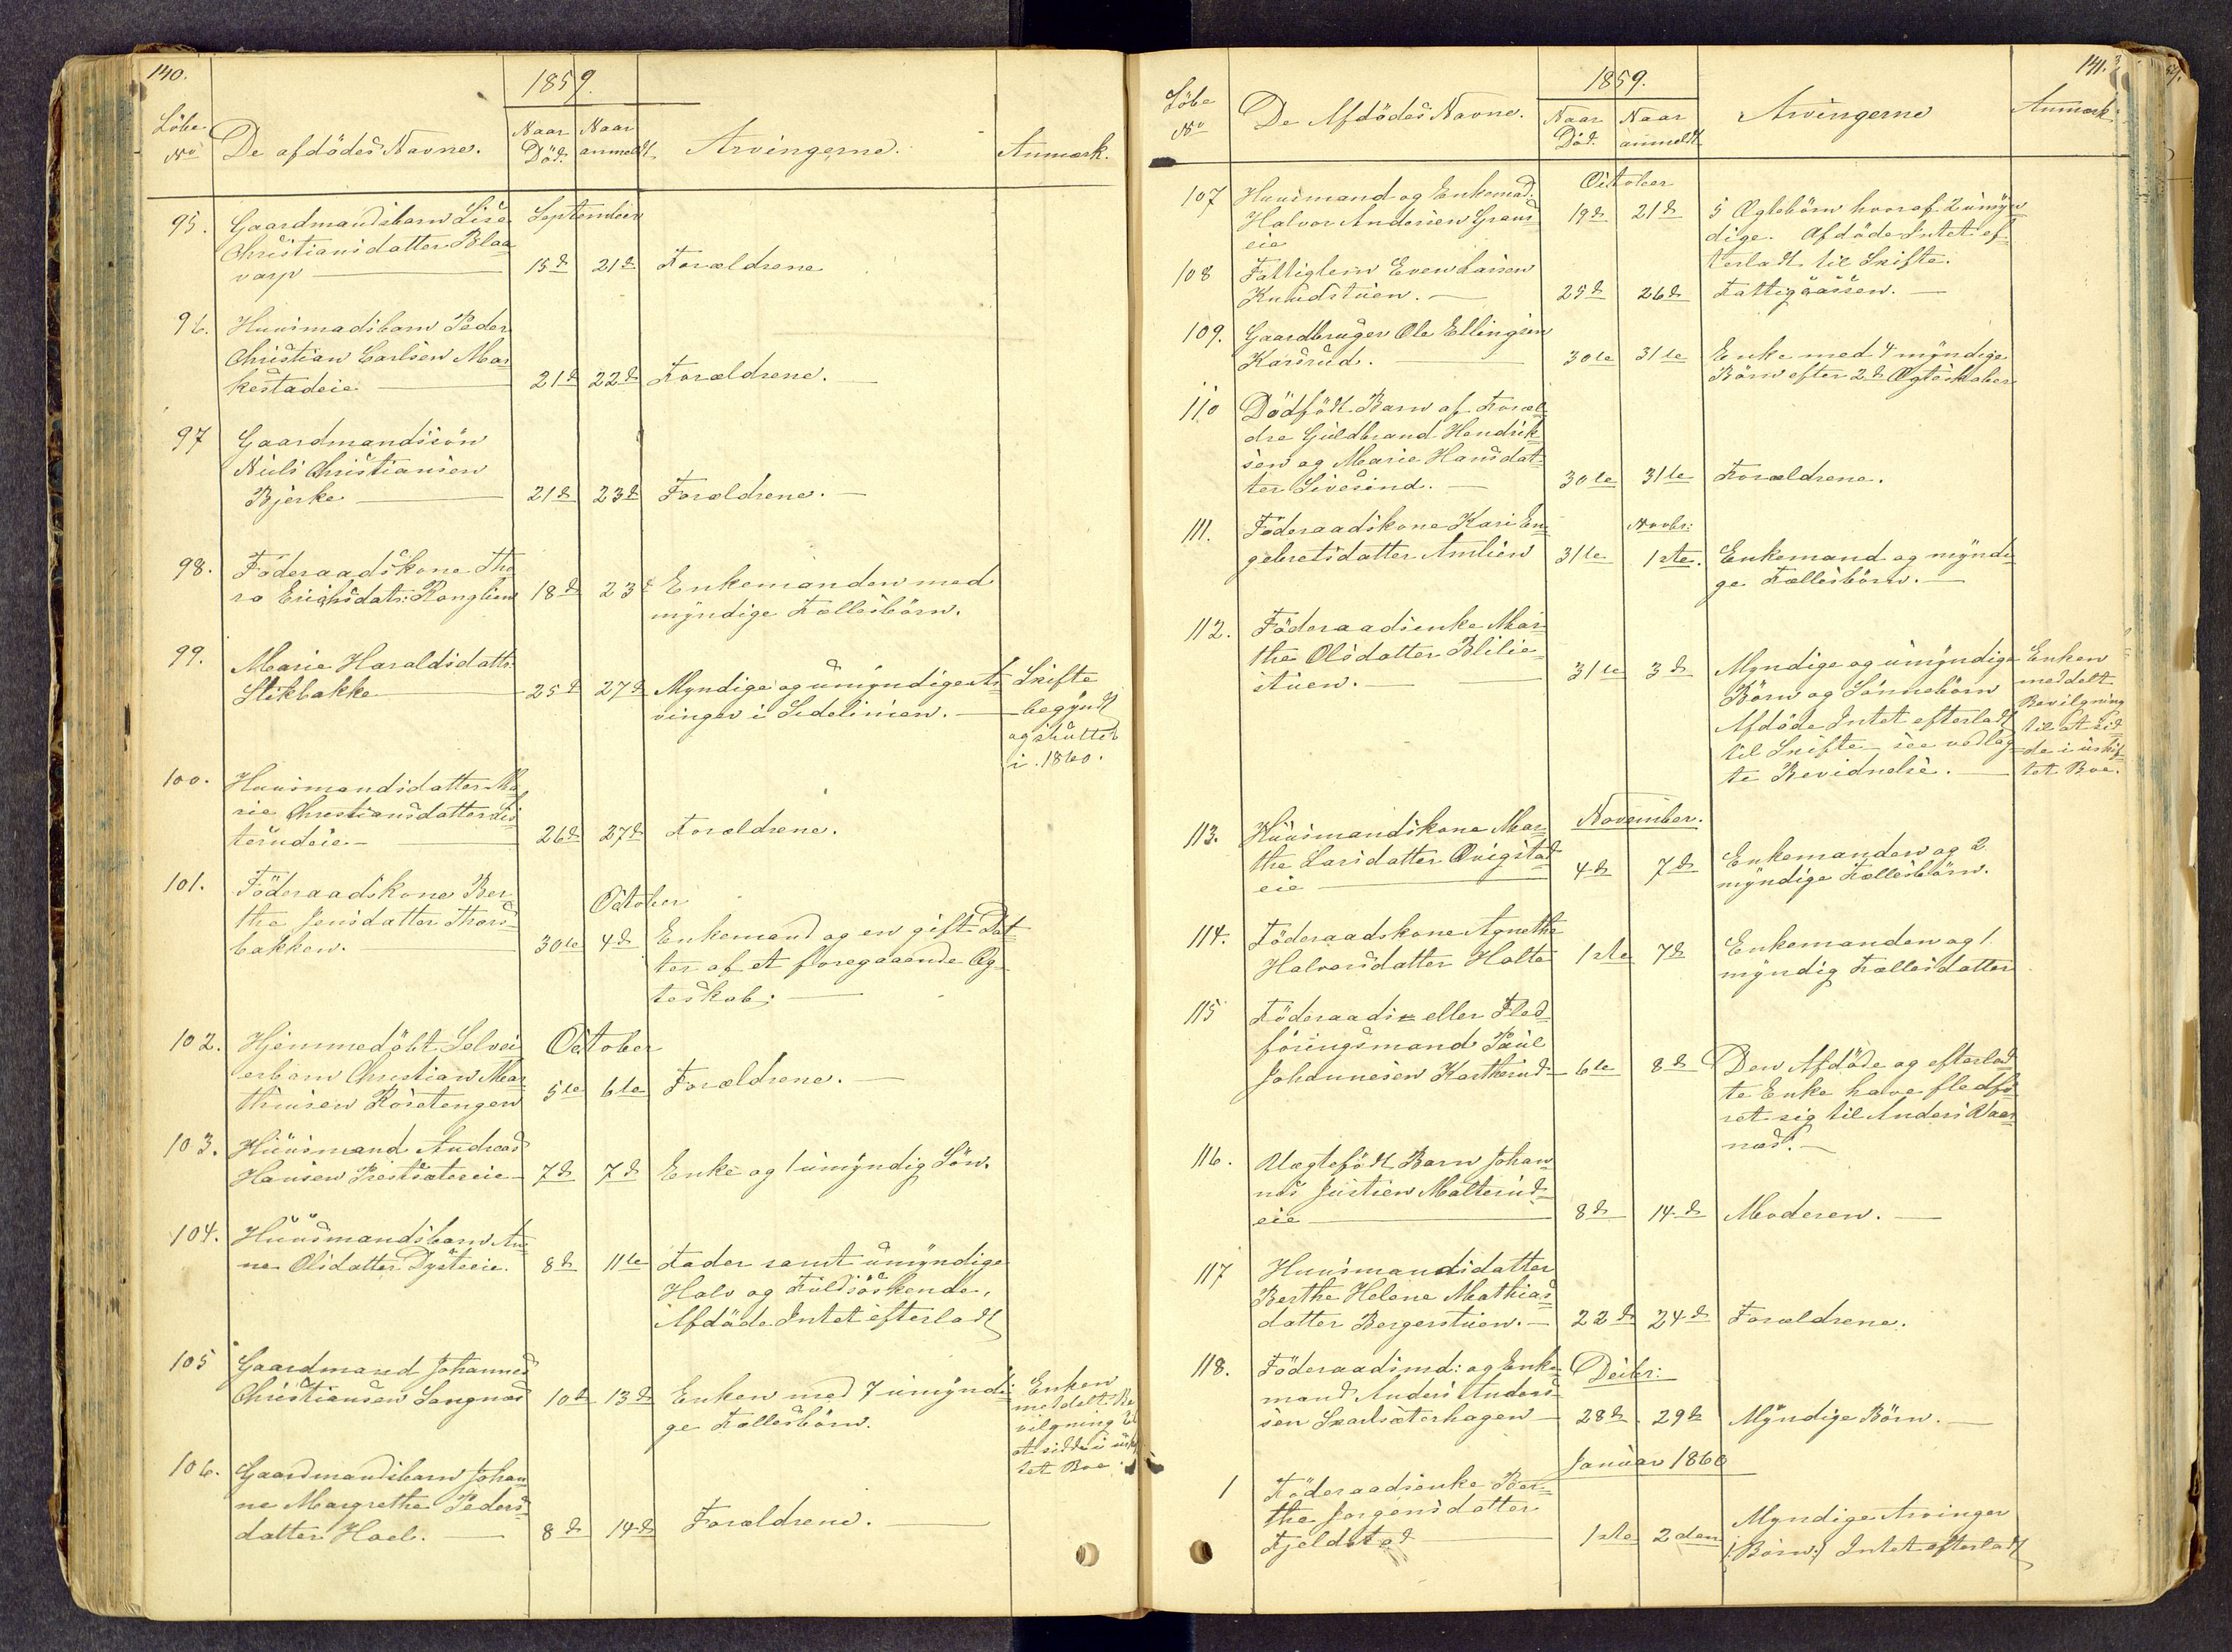 140.
1859.
Löbe No De afdödes Navne. Naar Död. Naar anmeldt Arvingerne. Anmærk.
September
95. Gaardmandsbarn Lise
Christiansdatter Blaa-
varp 15d 21d Forældrene
96. Huusmadsbarn Peder
Christian Carlsen Mar-
kestadeie 21d 22d Forældrene.
97 Gaardmandssön
Niels Christiansen
Bjerke 21d 23d Forældrene.
98. Föderaadskone Tho-
ra Erichsdatr: Ranglien 18d 23d Enkemanden med
myndige Fællesbörn.
99. Marie Haraldsdattr
Stikbakke 25d 27d Myndige og umyndige Ar-
vinger i Sidelinien.
Skifte
begyndt
og sluttet
i 1860.
100. Huusmandsdatter Ma-
rie Christiansdatter Lis-
terudeie 26d 27d Forældrene.
101. Föderaadskone Ber-
the Jensdatter Thors-
bakken.
October
30te 4d Enkemand og en gift Dat-
ter af et foregaaende Æg-
teskab;
102. Hjemmedöbt Selvei-
erbarn Christian Mar-
thinsen Rosetengen
October
5te 6te Forældrene.
103. Huusmand Andreas
Hansen Prestsætereie 7d 7d Enke og 1 umyndig Sön.
104. Huusmandsbarn An-
ne Olsdatter Dysteeie. 8d 11te Fader samt umyndige
Halv og Fuldsöskende,
Afdöde Intet efterladt
105 Gaardmand Johannes
Christiansen Sangnæs 10d 13d Enken med 7 umyndi-
ge Fællesbörn.
Enken
meddelt Be-
vilgning til
at sidde i uskif-
tet Boe.
106. Gaardmandsbarn Johan-
ne Margrethe Peders-
datter Hoel. 8d 14d Forældrene.
141.
1859.
Löbe No De Afdödes Navne. Naar Död. Naar anmeldt Arvingerne Anmærk.
October
107 Huusmand og Enkemad.
Halvor Andersen Graus-
eie 19d 21d 5 Ægtebörn hvoraf 2 umyn-
dige. Afdöde Intet ef-
terladt til Skifte.
108 Fattiglem Even Larsen
Knudstuen. 25d 26d Fattigcassen.
109. Gaardbruger Ole Ellingsen
Karsrud. 30te 31te Enke med 4 myndige
Börn efter 2d Ægteskaber
110 Dödfödt Barn af Foræl-
dre Guldbrand Hendrik-
sen og Marie Hansdat-
ter Sivesind. 30te 31te Forældrene.
111. Föderaadskone Kari En-
gebretsdatter Amlien 31te
Novbr:
1ste. Enkemand og myndi-
ge Fællesbörn.
112. Föderaadsenke Mar-
the Olsdatter Blilie-
stuen. 31te 3d Myndige og umyndige
Börn og Sönnebörn
Afdöde Intet efterladt
til Skifte see vedlag-
te Bevidnelse.
Enken
meddelt
Bevilgning
til at sid-
de i uskif-
tet Boe.
November.
113. Huusmandskone Mar-
the Larsdatter Qvigstad-
eie 4d 7d Enkemanden og 2
myndige Fællesbörn.
114. Föderaadskone Agnethe
Halvorsdatter Holte 1ste 7d Enkemanden og 1
myndig Fællesdatter
115 Föderaads- eller Fled-
föringsmand Paul
Johannesen Kartherud 6te 8d Den Afdöde og efterlad-
te Enke have fledfö-
ret sig til Anders
116. Uægtefödt Barn Johan-
nes Justsen Malterud-
eie 8d 14d Moderen.
117 Huusmandsdatter
Berthe Helene Mathias-
datter Bergerstuen. 22d 24d Forældrene.
118. Föderaadsmd: og Enke-
mand Anders Anders-
sen Skarlsæterhagen
Decbr:
28d. 29d Myndige Börn.
Januar 1860
1 Föderaadsenke Ber-
the Jorgensdatter
Fjeldstad 1ste 2den Myndige Arvinger
/: Börn :/ Intet efterladt